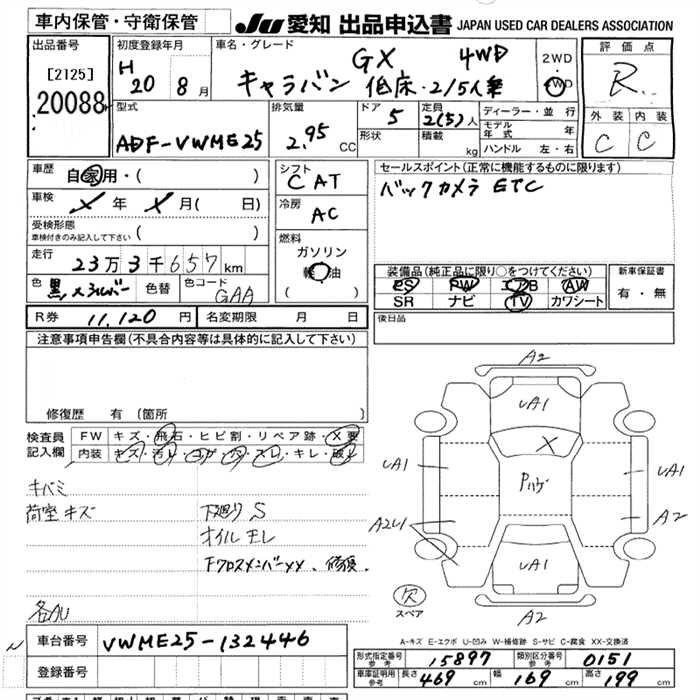 車内保管・守衛保管
JU 愛知 出品申込書 JAPAN USED CAR DEALERS ASSOCIATION
出品番号
[2125]
20088
初度登録年月
H 20 8月
車名・グレード
GX 4WD
キャラバン 低床・2/5人乗
2WD
・
4WD
評価点
R
外装 内装
C C
型式
ADF-VWME25
排気量
2.95 CC
ドア 5
形状
定員
2(5)人
積載 kg
ディーラー・並行
モデル年式 年
ハンドル 左・右
車歴 自家用・( )
車検 年 月( 日)
受検形態
車検付きのみ記入して下さい ( )
走行 23万3千657km
色 黒 色替 色コード GAA
シフト
CAT
冷房
AC
燃料
ガソリン
軽油
( )
セールスポイント(正常に機能するものに限ります)
バックカメラ ETC
装備品(純正品に限り○をつけてください)
PS PW エアB AW
SR ナビ TV カワシート
新車保証書
有・無
R券 11,120円 名変期限 月 日
後日品
注意事項申告欄(不具合内容等は具体的に記入して下さい)
修復歴 有(箇所 )
検査員
記入欄
FW キズ・飛石・ヒビ割・リペア跡・X要
内装 キズ・汚れ・コゲ・穴・スレ・キレ・破れ
キバミ
荷室キズ
下廻りS
オイルモレ
FクロスメンバーXX、修復。
各AU
A2
UA1
UA1
Pハゲ
UA1
A2U1
A2
UA1
A2
欠
スペア
A-キズ E-エクボ U-凹み W-補修跡 S-サビ C-腐食 XX-交換済
車台番号 VWME25-132446
登録番号
形式指定番号
参考
15897
類別区分番号
参考
0151
車庫証明用
参考
長さ 469cm 幅 169cm 高さ 199cm